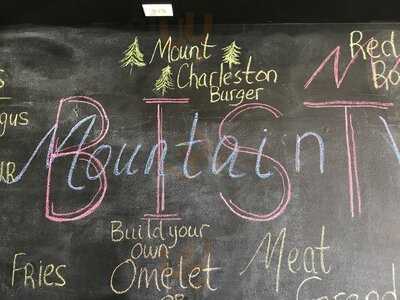 Mount
Charleston
Burger
Red
Mountain
BIST
Build your
own
Omelet
OR
Fries
Meat